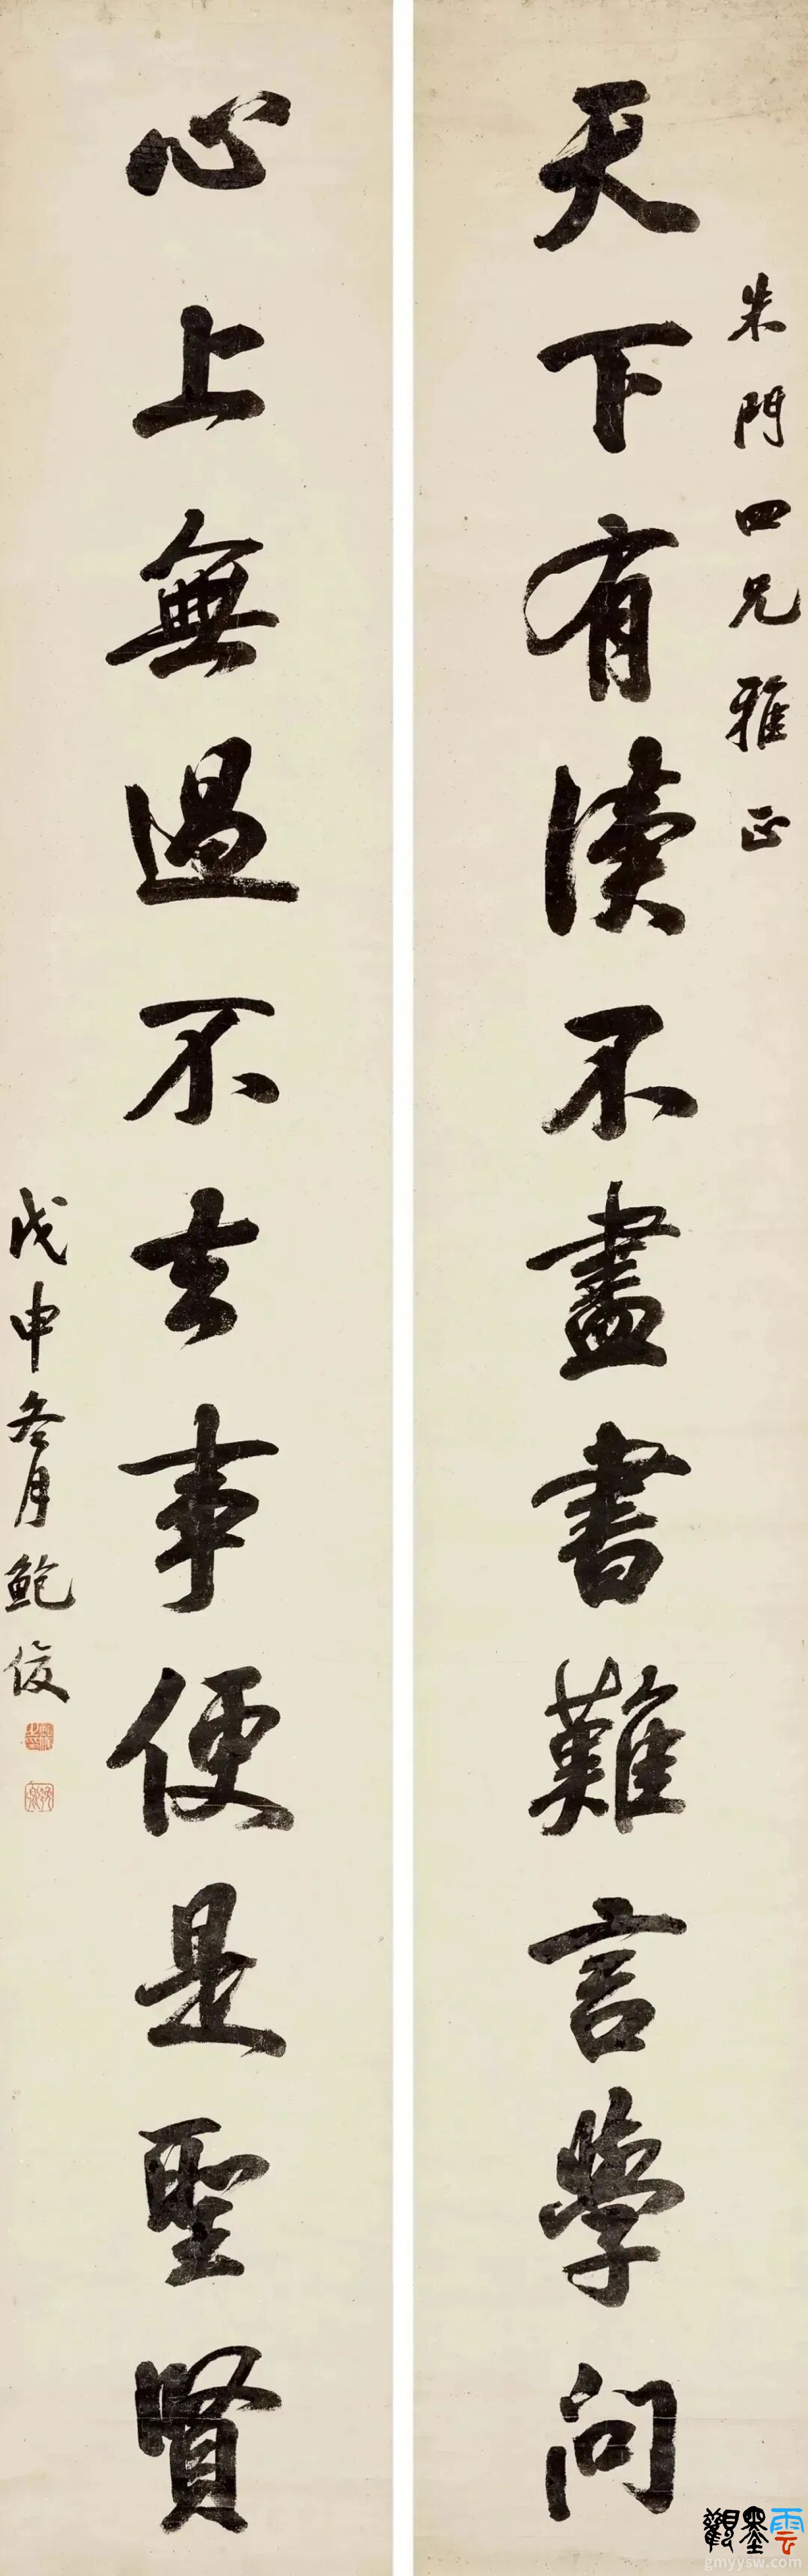 朱門四兄雅正
天下有讀不盡書難言學問
心上無過不去事便是聖賢
戊申冬月鮑俊
觀墨雲
gmyysw.com